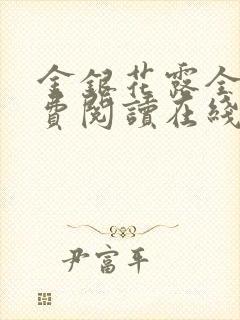 金銀花露全
費閱讀在綫
尹富平